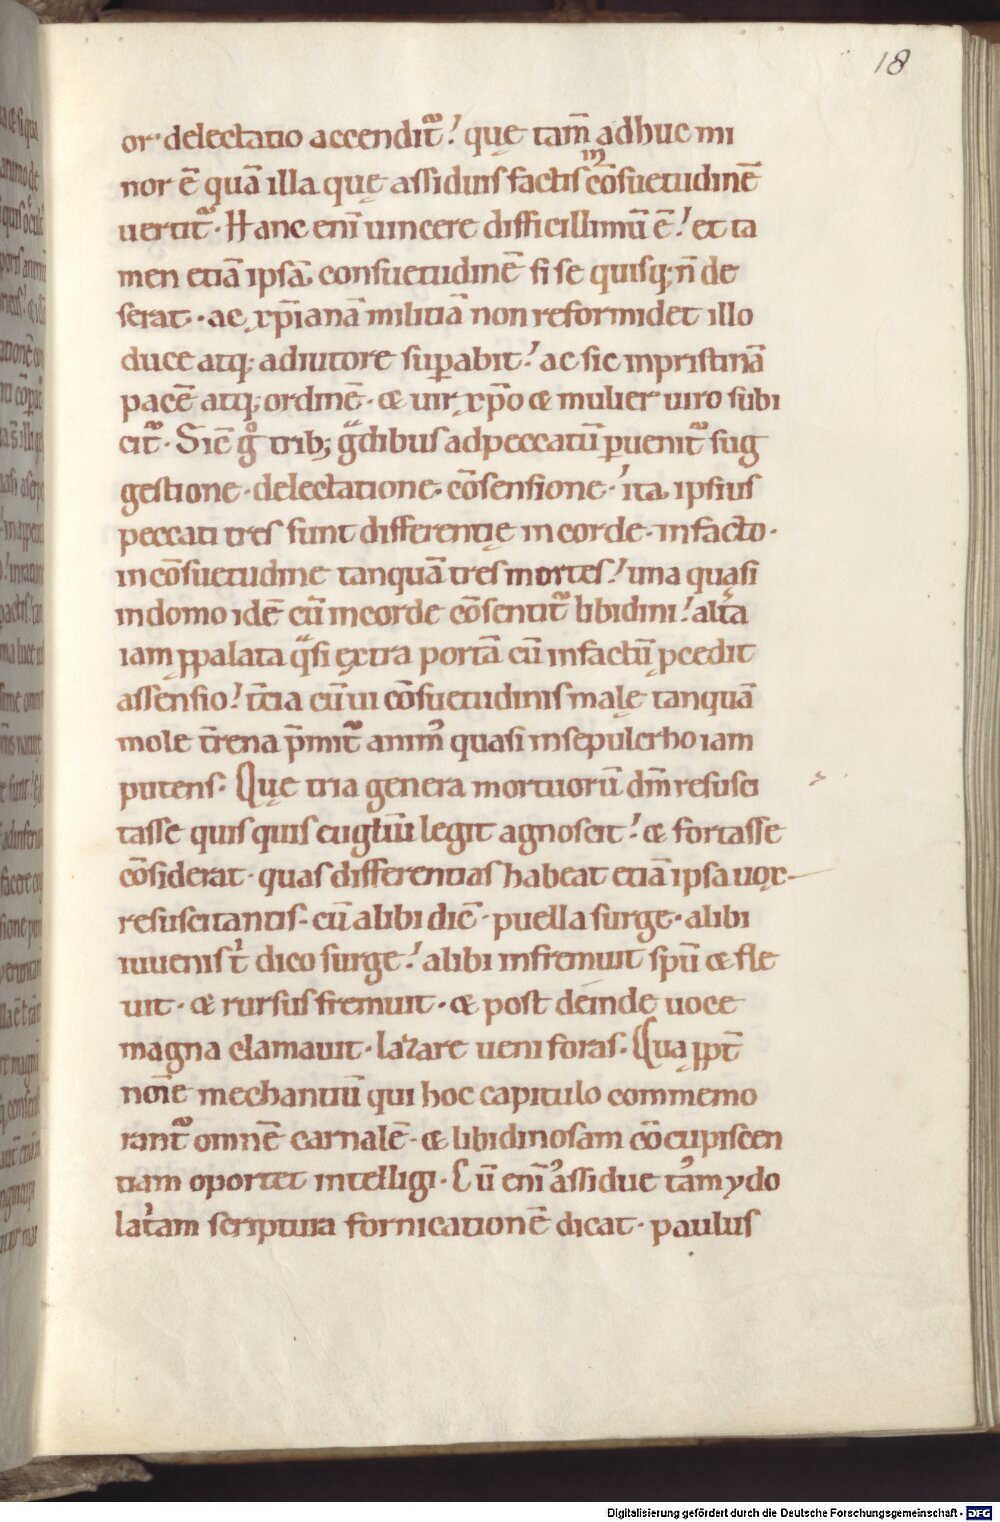 18
or delectatio accendit᷑. quę tam̄ adhuc mi
nor ē quā illa quę assiduis factis in cōsuetudinē
uertit᷑. Hanc eni uincere difficillimū ē. et ta
men etiā ipsā consuetudinē si se quisq; n̄ de
serat. ac xp̄ianā militiā non reformidet illo
duce atq; adiutore suꝑabit. ac sic inpristinā
pacē atq; ordinē. & uir xp̄o & mulier uiro subi
cit᷑. Sic gͦ trib; gͣdibus adpeccatū ꝑuenit᷑ sug
gestione. delectatione. cōsensione. ita ipsius
peccati tres sunt differentię in corde. infacto.
in cōsuetudine tanquā tres mortes. una quasi
indomo idē cū incorde cōsentit᷑ libidini. alt̄a
iam ꝓpalata qͣsi extra portā cū infactū ꝓcedit
assensio. t̄cia cū ui cōsuetudinis malę tanquā
mole t̄rena p̄mit᷑ animꝰ quasi insepulchro iam
putens. Quę tria genera mortuorū dn̄m resusci
tasse quis quis eugłiū legit agnoscit. & fortasse
cōsiderat. quas differentias habeat etiā ipsa uox
resuscitantis. cū alibi dic̄. puella surge. alibi
iuuenis t̄ dico surge. alibi infremuit sp̄u & fle
uit. & rursus fremuit. & post deinde uoce
magna clamauit. lazare ueni foras. Qua ꝓpt̄
nōie mechantiū qui hoc capitulo commemo
rant᷑ omnē carnalē. & libidinosam cōcupiscen
tiam oportet intelligi. Cū eni ̓assidue tāmydo
lat̓am scriptura fornicationē dicat. paulus
Digitalisierung gefördert durch die Deutsche Forschungsgemeinschaft - DFG